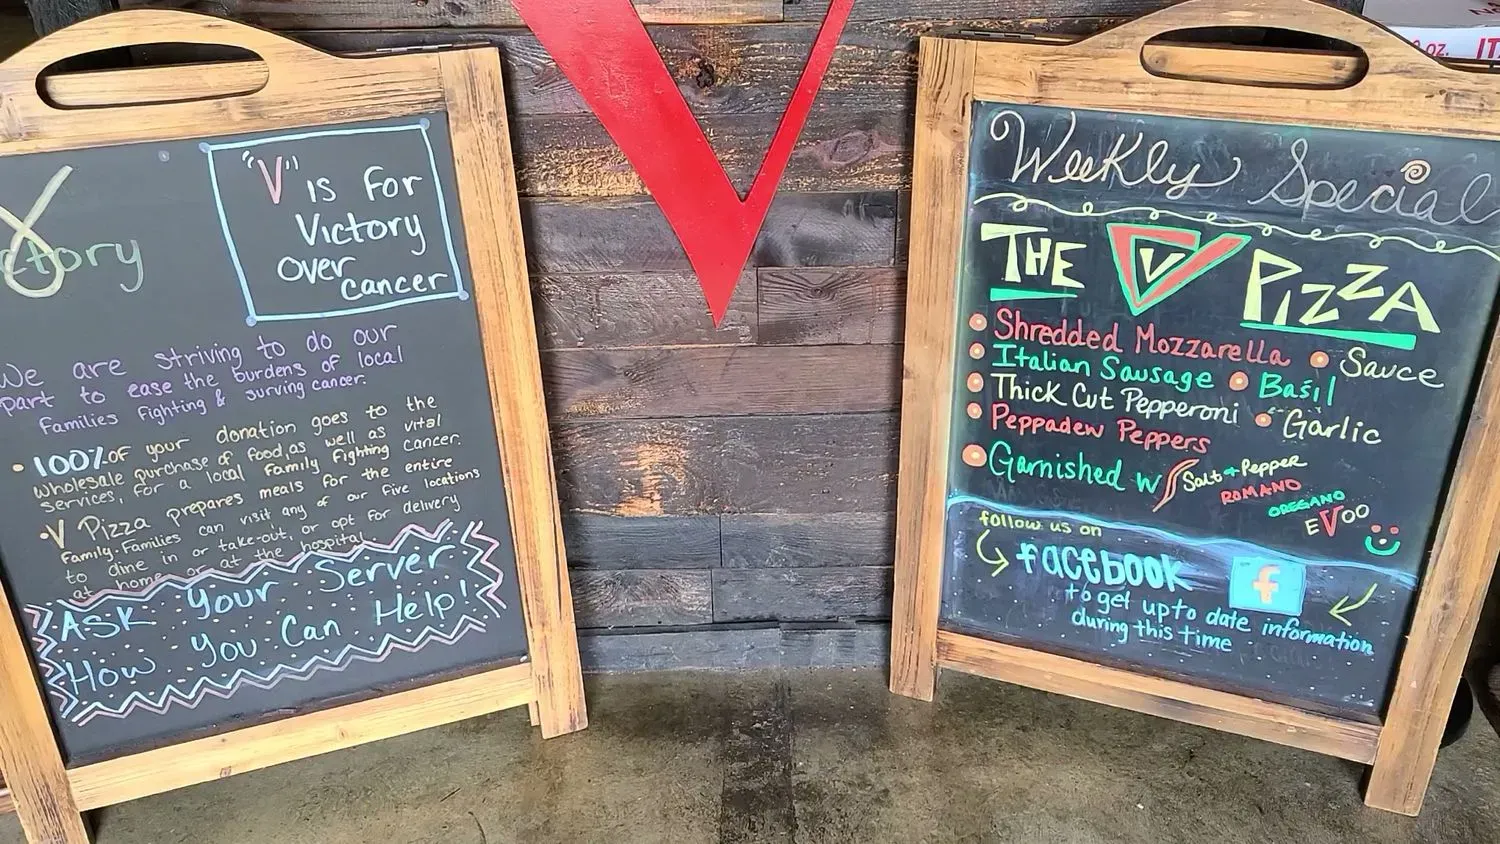 "V" is for
Victory
over
cancer
ctory
We are striving to do our
part to ease the burdens of local
Families Fighting & surving cancer.
• 100% of your donation goes to the
wholesale purchase of food, as well as vital
services, for a local Family Fighting cancer.
• V Pizza prepares meals for the entire
Family. Families can visit any of our five locations
to dine in or take-out, or opt for delivery
at home or at the hospital
Ask Your Server
How You Can Help!
Weekly Special
THE V PIZZA
Shredded Mozzarella • Sauce
Italian Sausage • Basil
Thick Cut Pepperoni • Garlic
Peppadew Peppers
Garnished w/ Salt & Pepper
ROMANO
OREGANO
EVOO
follow us on
facebook f
to get up to date information
during this time
OZ. IT